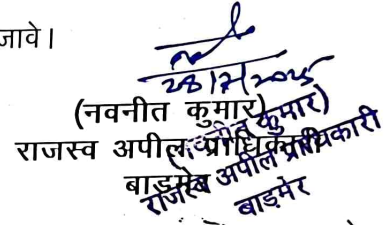 जावे।
28/7/2025
(नवनीत कुमार)
राजस्व अपील प्राधिकारी
बाड़मेर
(नवनीत कुमार)
राजस्व अपील प्राधिकारी
बाड़मेर